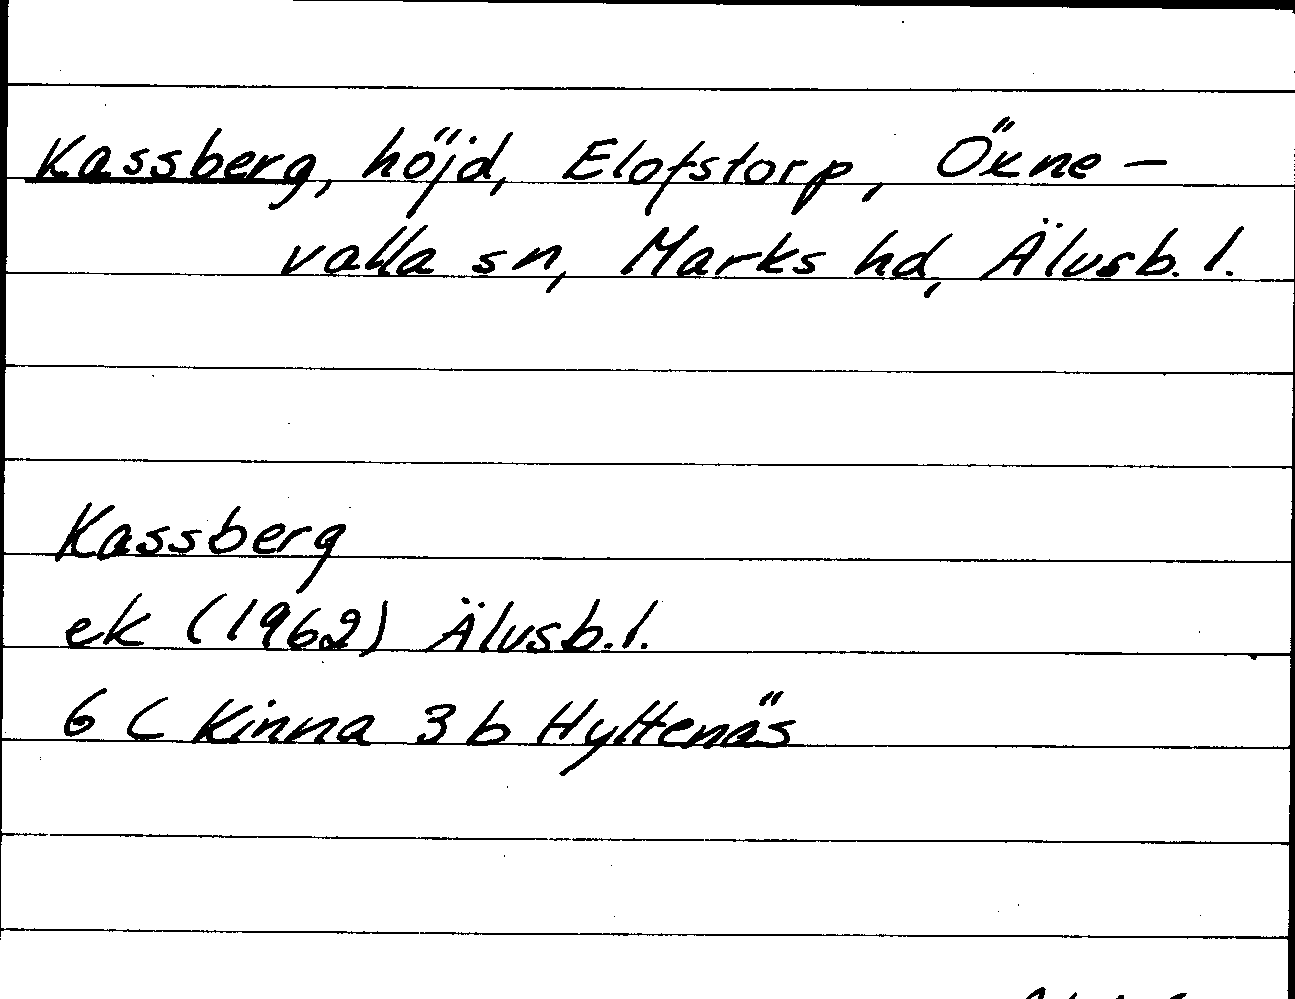 Kassberg, höjd, Elofstorp, Öxne-
valla sn, Marks hd, Älvsb. l.
Kassberg
ek (1962) Älvsb. l.
6 C Kinna 3 b Hyltenäs